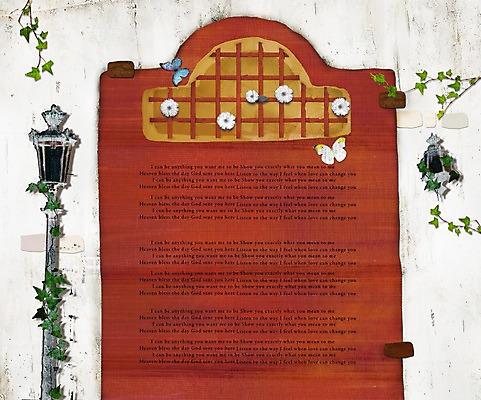 I can be anything you want me to be Show you exactly what you mean to me
Heaven bless the day God sent you here Listen to the way I feel when love can change you
I can be anything you want me to be Show you exactly what you mean to me
Heaven bless the day God sent you here Listen to the way I feel when love can change you
I can be anything you want me to be Show you exactly what you mean to me
Heaven bless the day God sent you here Listen to the way I feel when love can change you
I can be anything you want me to be Show you exactly what you mean to me
Heaven bless the day God sent you here Listen to the way I feel when love can change you
I can be anything you want me to be Show you exactly what you mean to me
Heaven bless the day God sent you here Listen to the way I feel when love can change you
I can be anything you want me to be Show you exactly what you mean to me
Heaven bless the day God sent you here Listen to the way I feel when love can change you
I can be anything you want me to be Show you exactly what you mean to me
Heaven bless the day God sent you here Listen to the way I feel when love can change you
I can be anything you want me to be Show you exactly what you mean to me
Heaven bless the day God sent you here Listen to the way I feel when love can change you
I can be anything you want me to be Show you exactly what you mean to me
Heaven bless the day God sent you here Listen to the way I feel when love can change you
I can be anything you want me to be Show you exactly what you mean to me
Heaven bless the day God sent you here Listen to the way I feel when love can change you
I can be anything you want me to be Show you exactly what you mean to me
Heaven bless the day God sent you here Listen to the way I feel when love can change you
I can be anything you want me to be Show you exactly what you mean to me
Heaven bless the day God sent you here Listen to the way I feel when love can change you